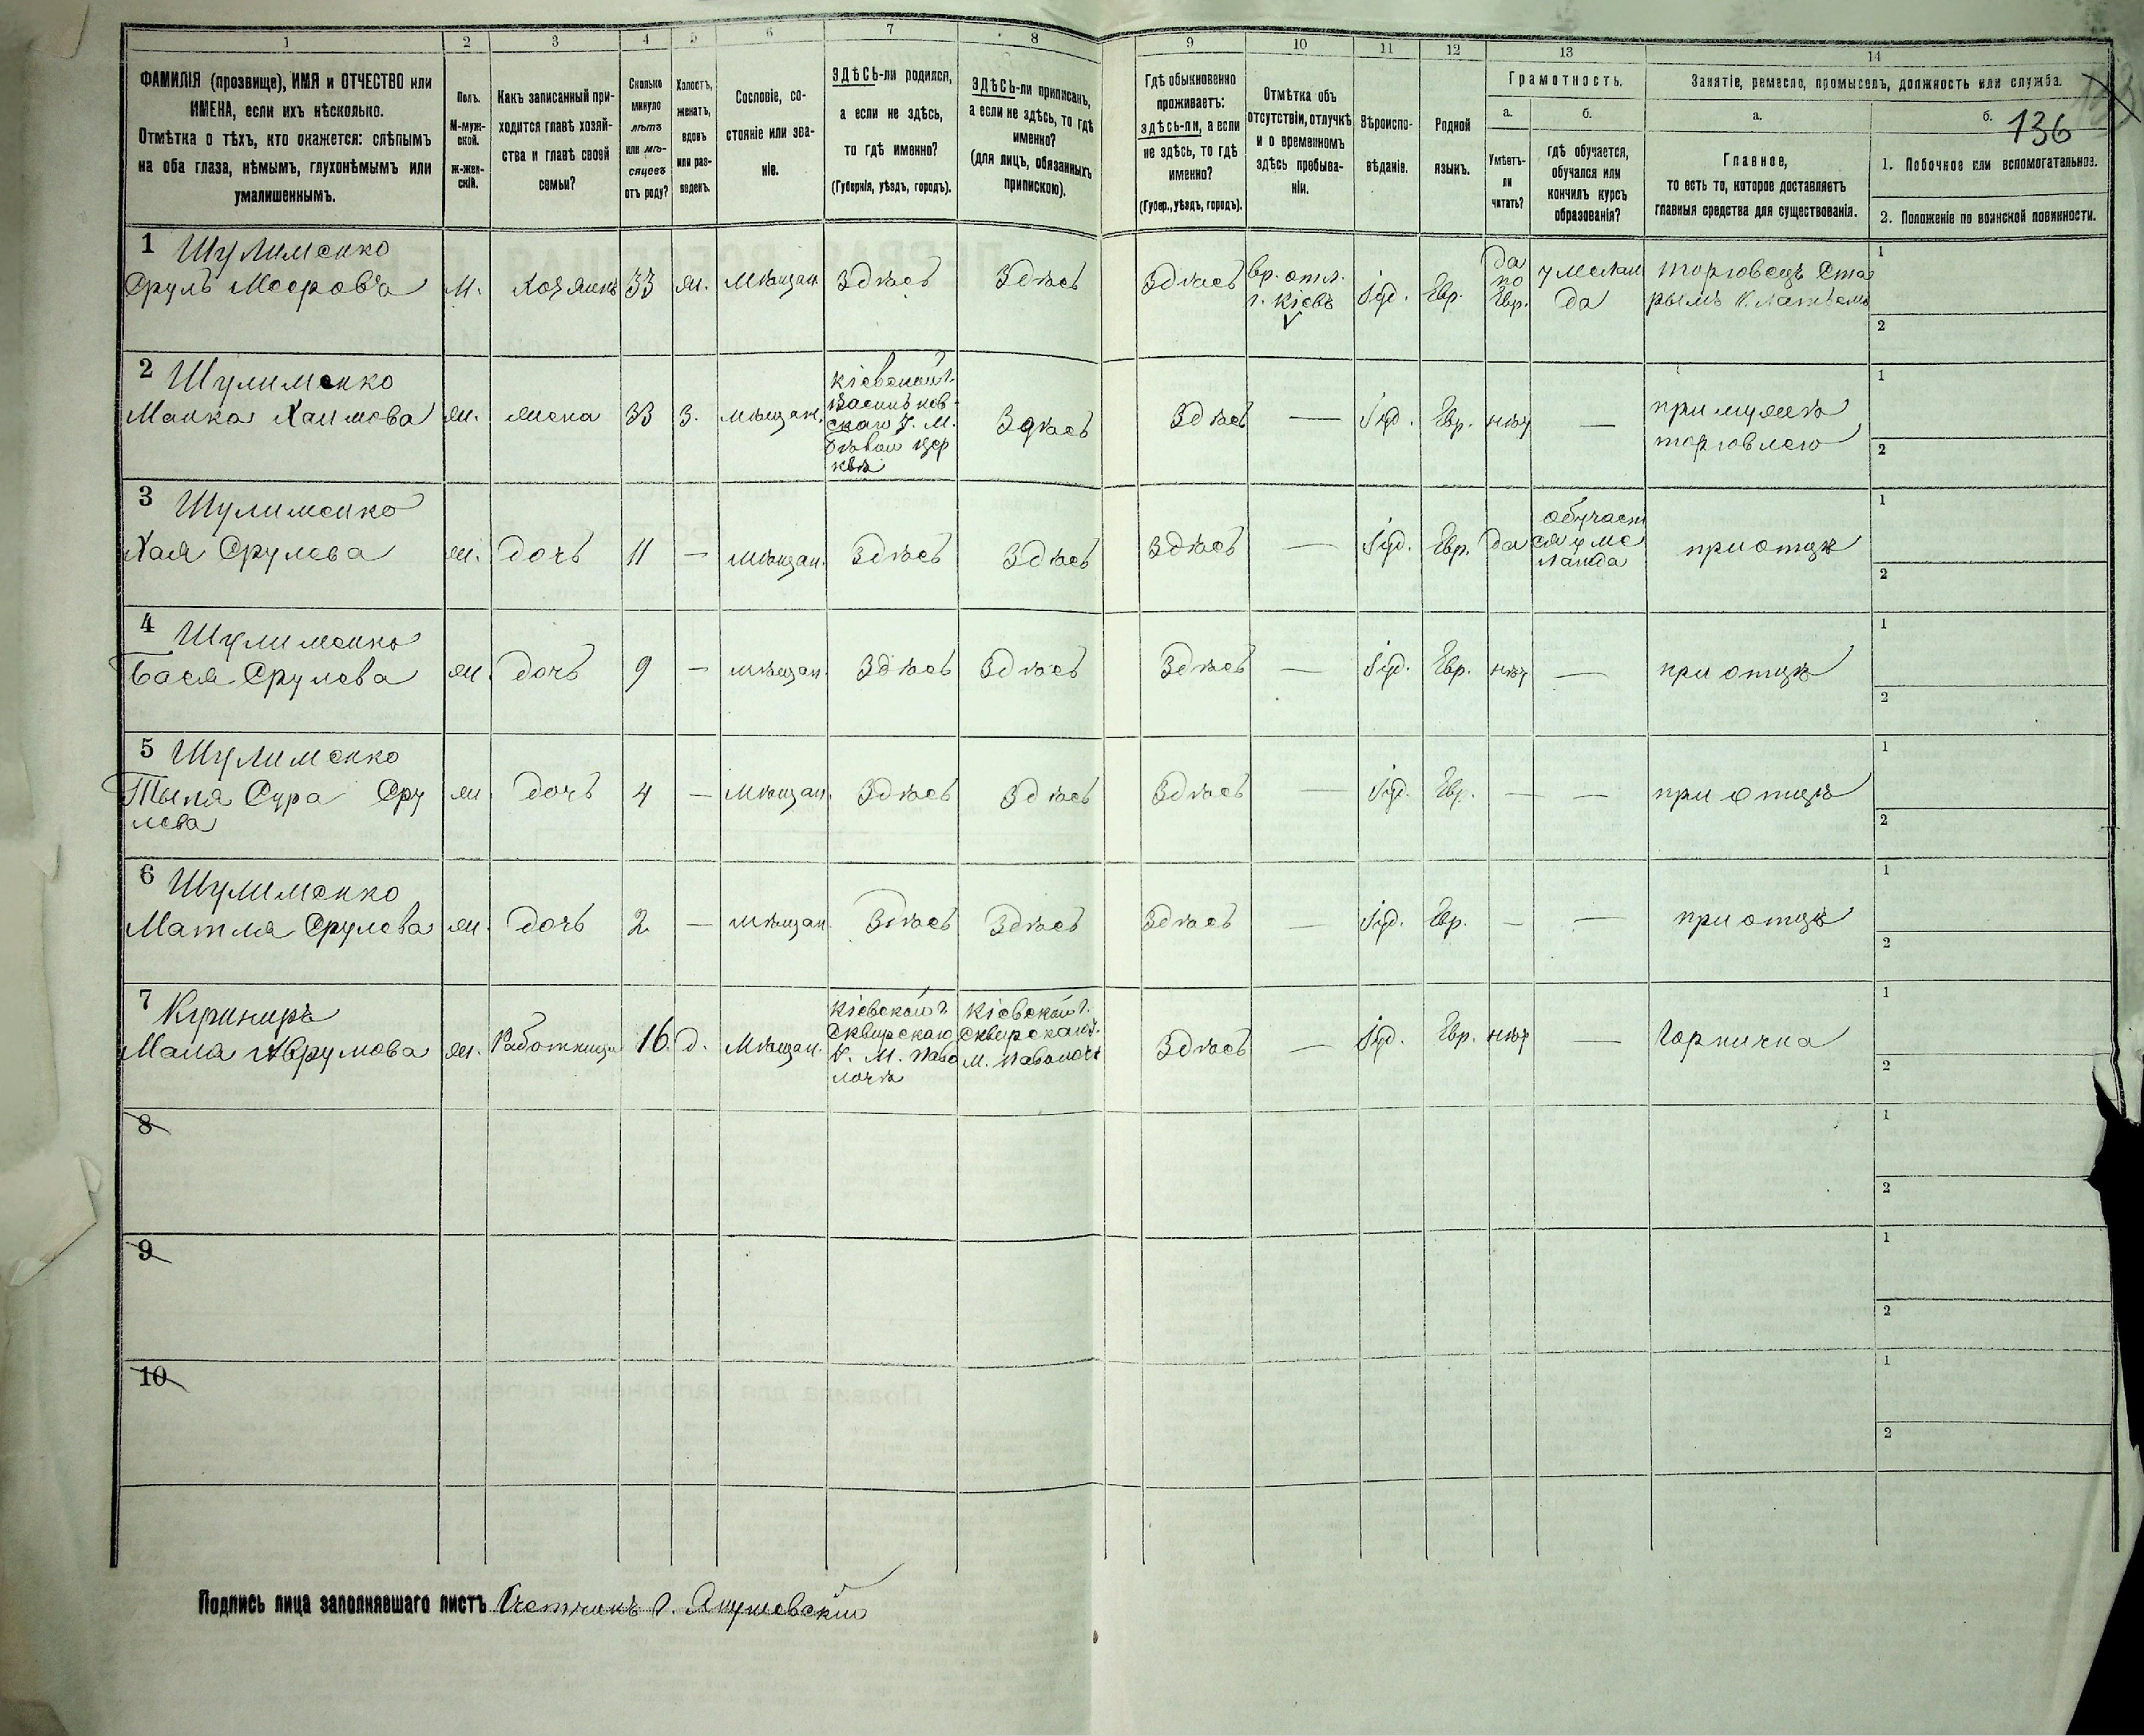 1 2 3 4 5 6 7 8 9 10 11 12 13 14
ФАМИЛІЯ (прозвище), ИМЯ и ОТЧЕСТВО или
ИМЕНА, если ихъ нѣсколько.
Отмѣтка о тѣхъ, кто окажется: слѣпымъ
на оба глаза, нѣмымъ, глухонѣмымъ или
умалишеннымъ.
Полъ.
М-муж-
ской.
ж-жен-
скій.
Какъ записанный при-
ходится главѣ хозяй-
ства и главѣ своей
семьи?
Сколько
минуло
лѣтъ
или мѣ-
сяцевъ
отъ роду?
Холостъ,
женатъ,
вдовъ
или раз-
веденъ.
Сословіе, со-
стояніе или зва-
ніе.
ЗДѢСЬ-ли родился,
а если не здѣсь,
то гдѣ именно?
(Губернія, уѣздъ, городъ).
ЗДѢСЬ-ли приписанъ,
а если не здѣсь, то гдѣ
именно?
(для лицъ, обязанныхъ
припискою).
Гдѣ обыкновенно
проживаетъ:
здѣсь-ли, а если
не здѣсь, то гдѣ
именно?
(Губер., уѣздъ, городъ).
Отмѣтка объ
отсутствіи, отлучкѣ
и о временномъ
здѣсь пребыва-
ніи.
Вѣроиспо-
вѣданіе.
Родной
языкъ.
Грамотность.
а.
Умѣетъ-
ли
читать?
б.
гдѣ обучается,
обучался или
кончилъ курсъ
образованія?
Занятіе, ремесло, промыселъ, должность или служба.
а.
Главное,
то есть то, которое доставляетъ
главныя средства для существованія.
б. 136
1. Побочное или вспомогательное.
2. Положеніе по воинской повинности.
1 Шулименко
Сруль Мееровъ М. Хозяинъ 33 ж. Мѣщан. Здѣсь Здѣсь Здѣсь вр. отл.
г. Кіевъ Іуд. Евр. да
по
Евр. у мелам
да торговецъ Ста
рымъ 1
2
2 Шулименко
Манка Хаимова ж. жена 33 З. мѣщан. Кіевской г.
Васильков-
скаго У. М.
Бѣлой цер
квѣ Здѣсь Здѣсь — Іуд. Евр. нѣт — при мужѣ
торговлею 1
2
3 Шулименко
Хая Срулева ж. дочь 11 — мѣщан. Здѣсь Здѣсь Здѣсь — Іуд. Евр. да обучает
ся у ме
ламда при отцѣ 1
2
4 Шулименко
Бася Срулева ж. дочь 9 — мѣщан. Здѣсь Здѣсь Здѣсь — Іуд. Евр. нѣт — при отцѣ 1
2
5 Шулименко
Тыля Сура Сру
лева ж дочь 4 — Мѣщан. Здѣсь Здѣсь Здѣсь — Іуд. Евр. — — при отцѣ 1
2
6 Шулименко
Матля Срулева ж. дочь 2 — мѣщан. Здѣсь Здѣсь Здѣсь — Іуд. Евр. — — при отцѣ 1
2
7 Кушниръ
Мала Аврумова ж. Работница 16. д. Мѣщан. Кіевской г.
Сквирскаго
У. М. Паво
лочѣ Кіевской г.
Сквирскаго у.
М. Паволочи Здѣсь — Іуд. Евр. нѣт — Горничка 1
2
8 1
2
9 1
2
10 1
2
Подпись лица заполнявшаго листъ Счетчикъ Янушевскій